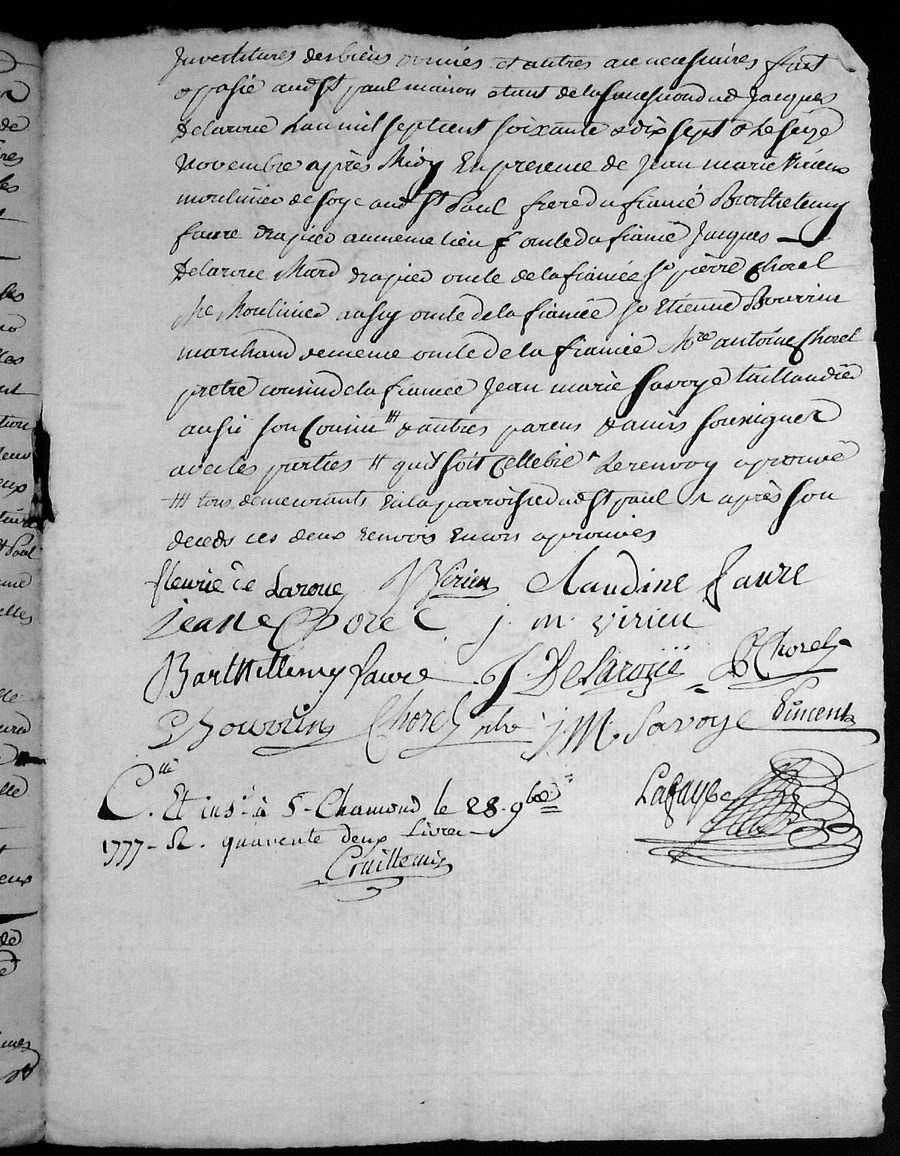 Juvestitures des biens donnés et autres accnecessaires fait
& passé aud St paul maison etant de la succession dud Jacques
Delaroüe L'an mil sept cent soixante & dix sept & Le seize
Novembre après Midy En presence de Jean marie Virieu
moulinier de soye aud St Paul frere du fiancé Barthelemy
faure drapier au meme lieu oncle du fiancé Jacques
Delaroüe Mard drapier oncle de la fiancée Sr pierre Chorel
Me Moulinier aussy oncle de la fiancée Sr Etienne Bouvrin
marchand de meme oncle de la fiancée Mre antoine Chorel
pretre cousin de la fiancée Jean marie Savoye taillandier
aussi son Cousin & autres parens & amis soussignez
avec les parties # quil soit Cellebré Le renvoy aprouvé
tous demeurants en la parroisse dud St paul après son
deceds ces deux renvois encors aprouvés
fleurie de Laroue Virieu Claudine faure
jeanne Chorel j. m. virieu
Barthellemy faure J. Delaroüe P Chorel
Bouvrin Chorel ptre JM Savoye Vincent
C. Et ins. à St Chamond le 28. 9bre Lafaye
1777 - Rc. quarente deux Livres